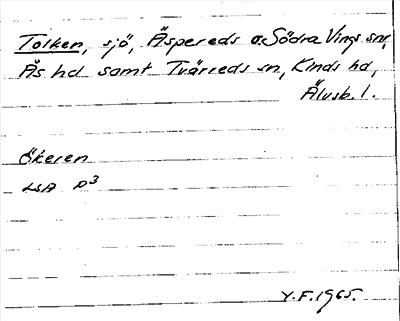 Tolken, sjö, Äspereds o. Södra Vings snr,
Ås hd samt Tvärreds sn, Kinds hd,
Älvsb. l.
Ökeren
LSA P3
Y.F. 1965.